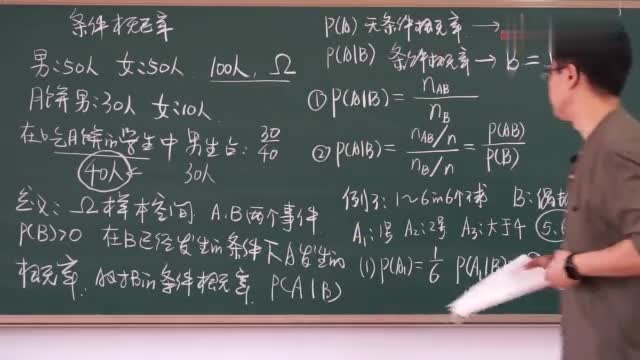 条件概率
男:50人 女:50人 100人, Ω
月饼 男:30人 女:10人
在吃月饼的学生中 男生占: 30/40
40人 30人
定义: Ω样本空间 A.B两个事件
P(B)>0 在B已经发生的条件下A发生的
概率. A对B的条件概率. P(A|B)
P(A) 无条件概率 →
P(A|B) 条件概率 → b =
① P(A|B) = n_AB / n_B
② P(A|B) = (n_AB/n) / (n_B/n) = P(AB) / P(B)
例1: 1~6的6个球 B:偶
A₁:1号 A₂:2号 A₃:大于4 5.
(1) P(A₁) = 1/6 P(A₁|B) =